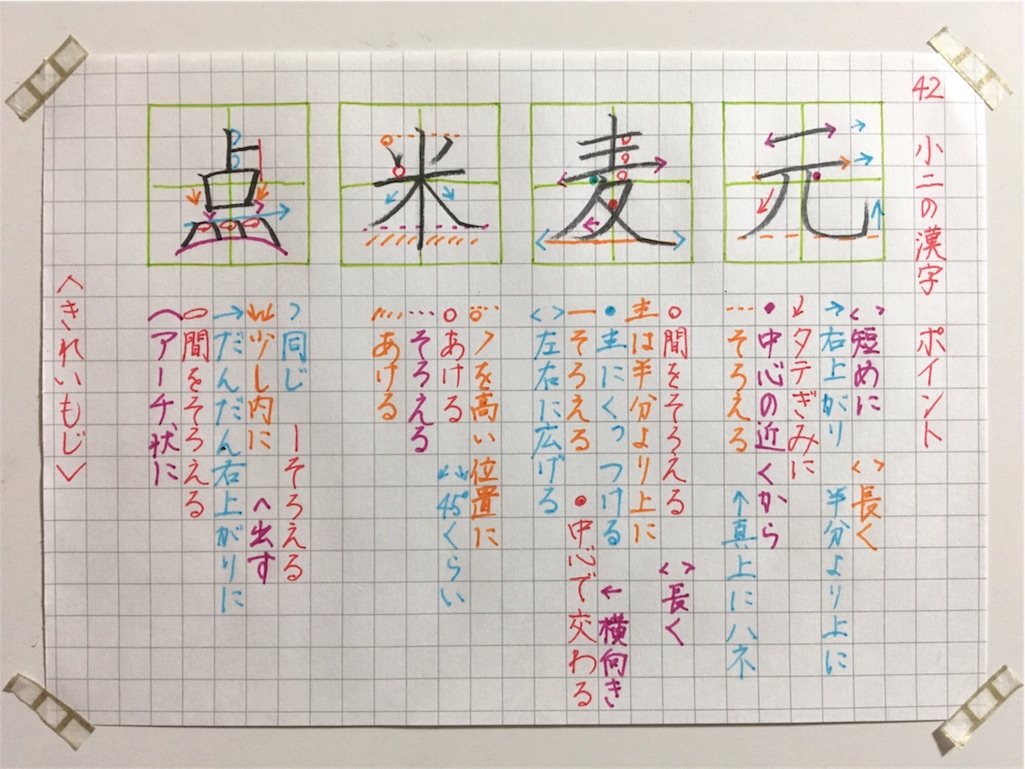 42 小二の漢字 ポイント
元
麦
米
点
<>短めに <>長く
→右上がり 半分より上に
↙タテぎみに
•中心の近くから ↑真上にハネ
…そろえる
○間をそろえる <>長く
主は半分より上に
•主にくっつける ←横向き
ーそろえる •中心で交わる
<>左右に広げる
ソを高い位置に
○あける ↙↘45°くらい
…そろえる
あける
>同じ ーそろえる
少し内に へ出す
→だんだん右上がりに
○間をそろえる
⌒アーチ状に
<きれいもじ>